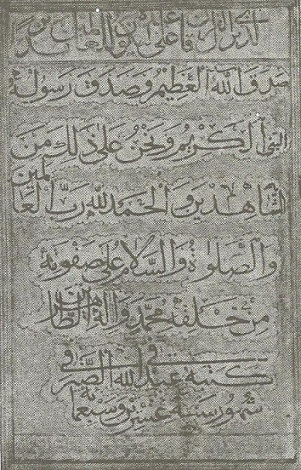 صدق الله العظيم وصدق رسوله
النبى الكريم ونحن على ذلك من
الشاهدين والحمد لله رب العالمين
والصلوة والسلام على صفوته
من خلقه محمد واله الطاهرين
كتبه عبد الله الصيرفى فى
شهور سنة عشرين وسبعمائة